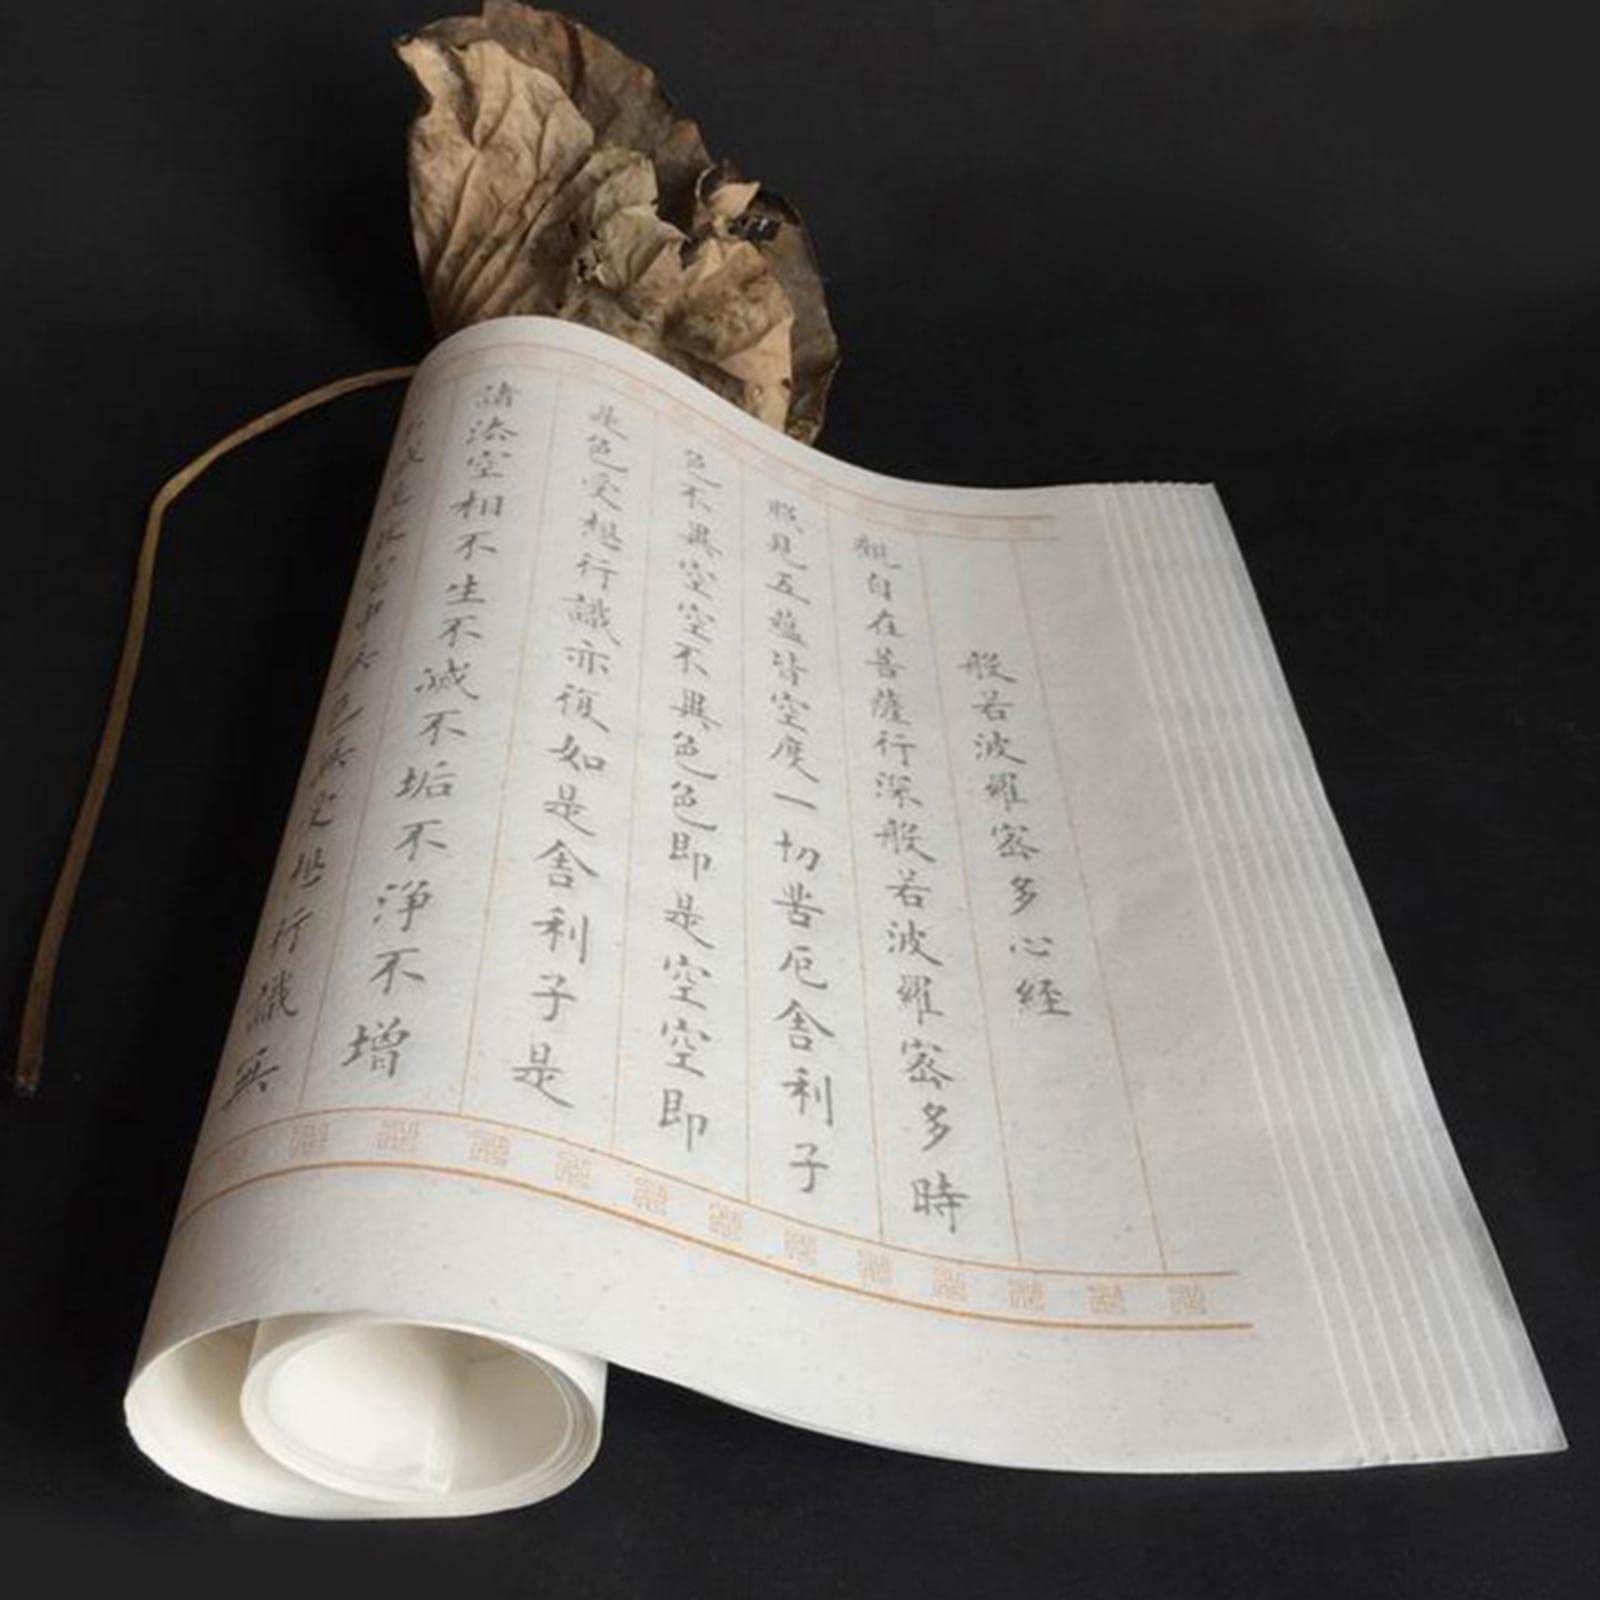 般若波羅密多心経
觀自在菩薩行深般若波羅密多時
照見五蘊皆空度一切苦厄舍利子
色不異空空不異色色即是空空即
是色受想行識亦復如是舍利子是
諸法空相不生不滅不垢不淨不增
是故空中無色無受想行識無